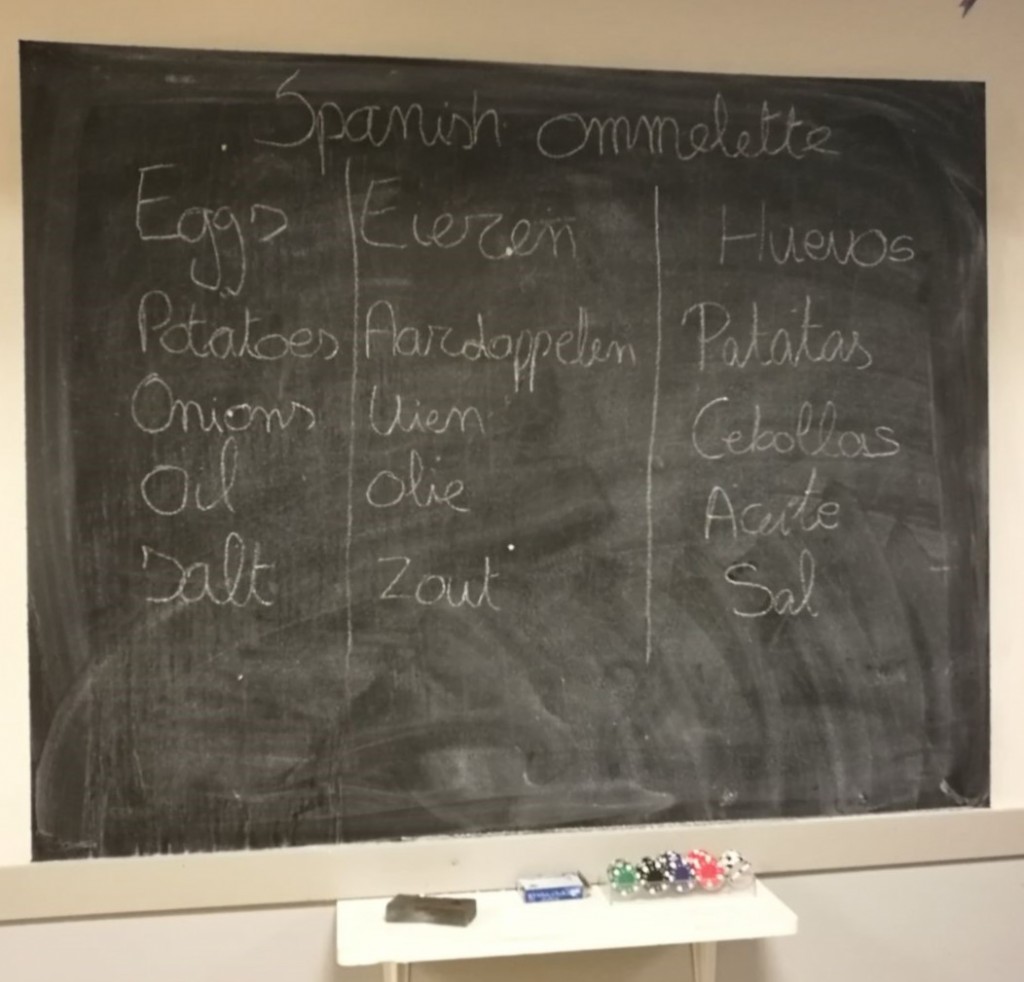 Spanish ommelette
Eggs Eieren Huevos
Potatoes Aardappelen Patatas
Onions Uien Cebollas
Oil Olie Aceite
Salt Zout Sal